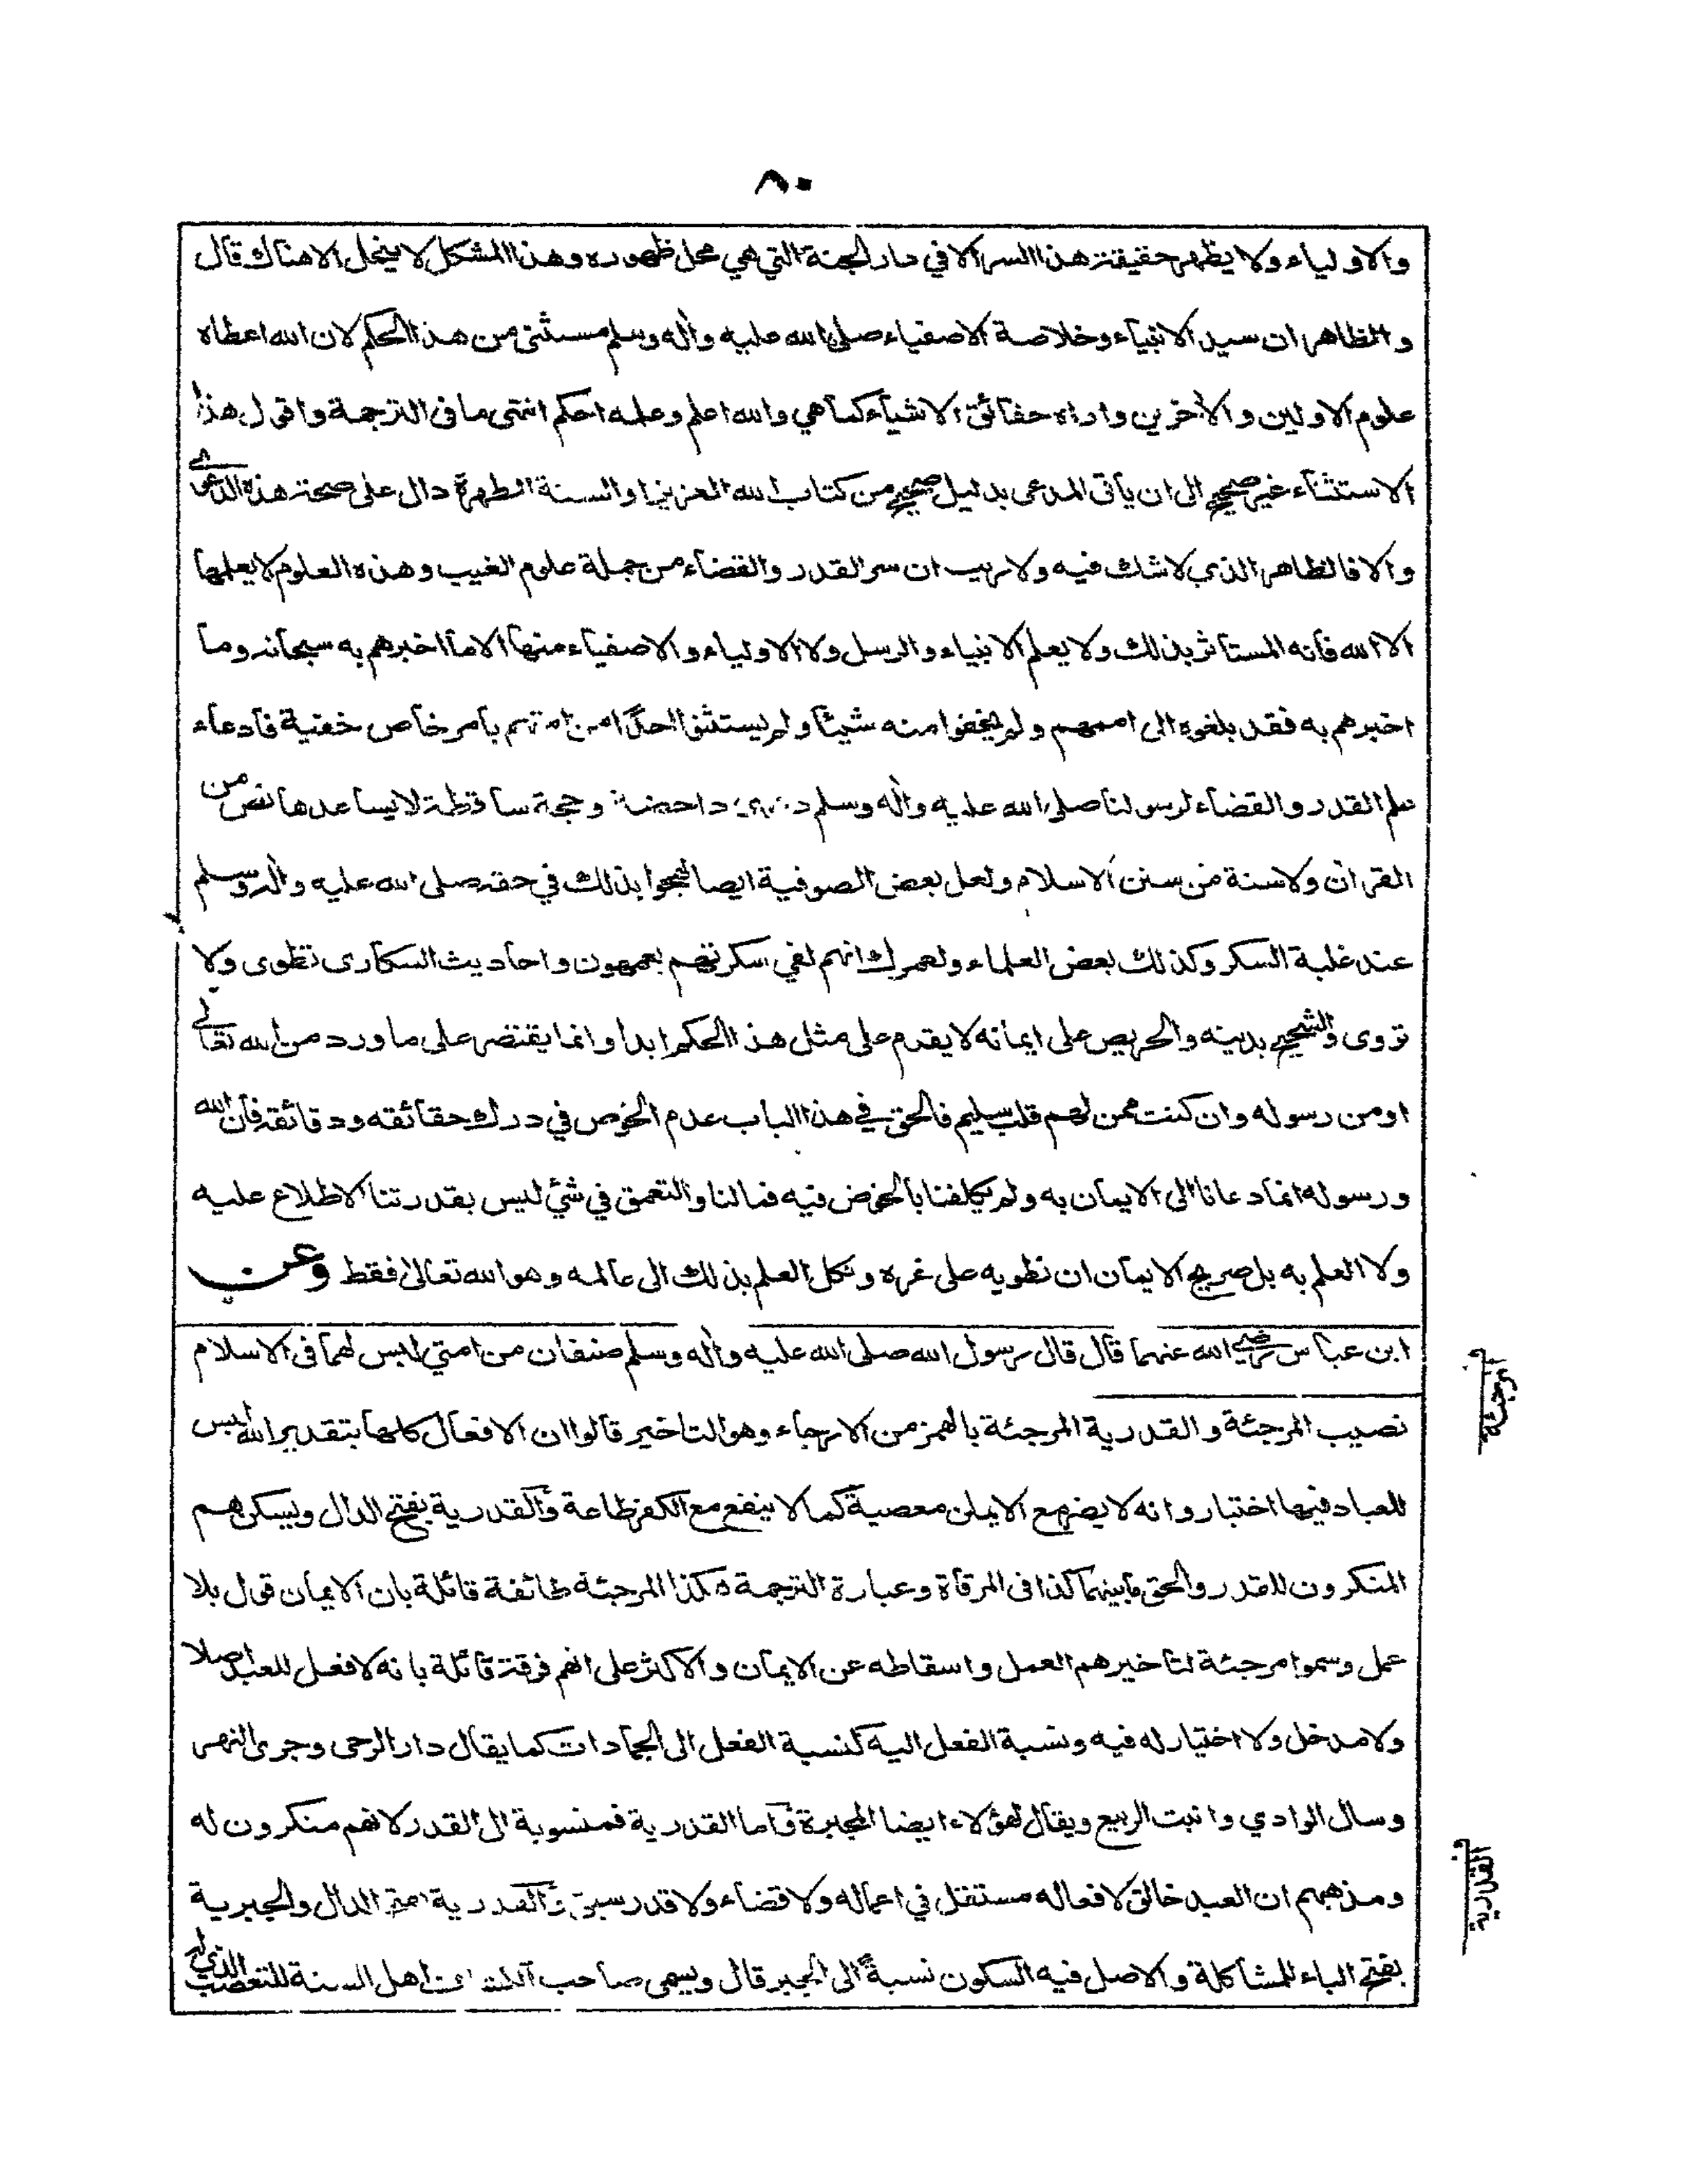 ٨٠
والاولياء ولا يظهر حقيقة هذا السر الا في دار الجنة التي هي محل ظهوره وهذا المشكل لا ينحل الا هناك قال
والظاهر ان سيد الانبياء وخلاصة الاصفياء صلى الله عليه واله وسلم مستثنى من هذا الحكم لان الله اعطاه
علوم الاولين والآخرين واداه حقائق الاشياء كما هي والله اعلم وعلمه احكم انتهى ما فى الترجمة واقول هذا
الاستثناء غير صحيح الى ان يأتى المدعى بدليل صحيح من كتاب الله العزيز او السنة المطهرة دال على صحة هذه الدعوى
والا فالظاهر الذي لا شك فيه ولا ريب ان سر القدر والقضاء من جملة علوم الغيب وهذه العلوم لا يعلمها
الا الله فانه المستاثر بذلك ولا يعلم الانبياء والرسل ولا الاولياء والاصفياء منها الا ما اخبرهم به سبحانه وما
اخبرهم به فقد بلغوه الى اممهم ولم يخفوا منه شيئا ولم يستثن احدا من امتهم بامر خاص خفية فادعاء
علم القدر والقضاء لرسولنا صلى الله عليه واله وسلم داحضة وحجة ساقطة لا يساعدها نص من
القرآن ولا سنة من سنن الاسلام ولعل بعض الصوفية ايضا بذلك في حقه صلى الله عليه واله وسلم
عند غلبة السكر وكذلك بعض العلماء ولعمرك انهم لفي سكرتهم يعمهون واحاديث السكارى تطوى ولا
تروى والشحيح بدينه والحريص على ايمانه لا يقدم على مثل هذا الحكم ابدا وانما يقتصر على ما ورد من الله تعالى
او من رسوله وان كنت ممن لهم قلب سليم فالحق في هذا الباب عدم الخوض في درك حقائقه ودقائقه فان الله
ورسوله انما دعانا الى الايمان به ولم يكلفنا بالخوض فيه فما لنا والتعمق في شيء ليس بقدرتنا الاطلاع عليه
ولا العلم به بل صريح الايمان ان نطويه على غره ونكل العلم بذلك الى عالمه وهو الله تعالى فقط وعن
ابن عباس رضي الله عنهما قال قال رسول الله صلى الله عليه واله وسلم صنفان من امتي ليس لهما فى الاسلام
نصيب المرجئة والقدرية المرجئة بالهمز من الارجاء وهو التاخير قالوا ان الافعال كلها بتقدير الله ليس
للعباد فيها اختيار وانه لا يضر مع الايمان معصية كما لا ينفع مع الكفر طاعة والقدرية بفتح الدال ويسكن هم
المنكرون للقدر والحق ما بينهما كذا فى المرقاة وعبارة الترجمة هكذا المرجئة طائفة قائلة بان الايمان قول بلا
عمل وسموا مرجئة لتاخيرهم العمل واسقاطه عن الايمان والاكثر على انهم فرقة قائلة بانه لا فعل للعبد اصلا
ولا مدخل ولا اختيار له فيه ونسبة الفعل اليه كنسبة الفعل الى الجمادات كما يقال دار الرحى وجرى النهر
وسال الوادي وانبت الربيع ويقال لهؤلاء ايضا المجبرة واما القدرية فمنسوبة الى القدر لانهم منكرون له
ومذهبهم ان العبد خالق لافعاله مستقل في اعماله ولا قضاء ولا قدر سبق والقدرية بفتح الدال والجبرية
بفتح الباء للمشاكلة والاصل فيه السكون نسبة الى الجبر قال ويسمى صاحب الكشاف اهل السنة للتعصب الذي له
المرجئة
القدرية